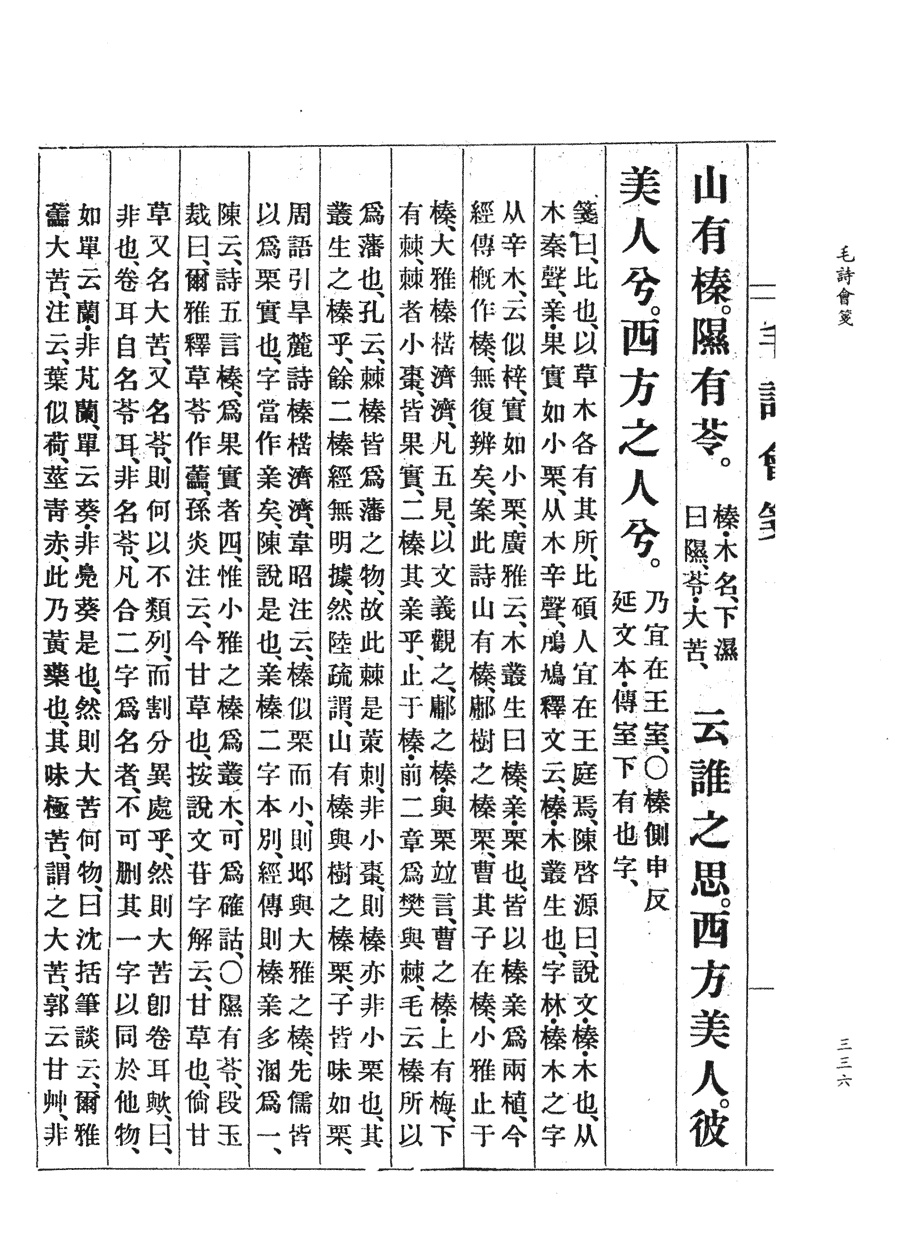 毛詩會箋
三三六
毛詩會箋
山有榛。隰有苓。
榛・木名、下濕
曰隰、苓・大苦、
云誰之思。西方美人。彼
美人兮。西方之人兮。
乃宜在王室、〇榛側申反
延文本・傳室下有也字、
箋曰、比也、以草木各有其所、比碩人宜在王庭焉、陳啓源曰、說文・榛・木也、从
木秦聲、亲・果實如小栗、从木辛聲、鳲鳩釋文云、榛・木叢生也、字林・榛木之字
从辛木、云似梓、實如小栗、廣雅云、木叢生曰榛、亲・栗也、皆以榛亲爲兩植、今
經傳槪作榛、無復辨矣、案此詩山有榛、鄘樹之榛栗、曹其子在榛、小雅止于
榛、大雅榛楛濟濟、凡五見、以文義觀之、鄘之榛・與栗竝言、曹之榛・上有梅、下
有棘、棘者小棗、皆果實、二榛其亲乎、止于榛・前二章爲樊與棘、毛云榛所以
爲藩也、孔云、棘榛皆爲藩之物、故此棘是茦刺、非小棗、則榛亦非小栗也、其
叢生之榛乎、餘二榛經無明據、然陸疏謂、山有榛與樹之榛栗、子皆味如栗、
周語引旱麓詩榛楛濟濟、韋昭注云、榛似栗而小、則邶與大雅之榛、先儒皆
以爲栗實也、字當作亲矣、陳說是也、亲榛二字本別、經傳則榛亲多溷爲一、
陳云、詩五言榛、爲果實者四、惟小雅之榛爲叢木、可爲確詁、〇隰有苓、段玉
裁曰、爾雅釋草苓作蘦、孫炎注云、今甘草也、按說文苷字解云、甘草也、倘甘
草又名大苦、又名苓、則何以不類列、而割分異處乎、然則大苦卽卷耳歟、曰、
非也、卷耳自名苓耳、非名苓、凡合二字爲名者、不可删其一字以同於他物、
如單云蘭・非芄蘭、單云葵・非鳧葵是也、然則大苦何物、曰沈括筆談云、爾雅
蘦大苦、注云、葉似荷、莖靑赤、此乃黃藥也、其味極苦、謂之大苦、郭云甘艸、非